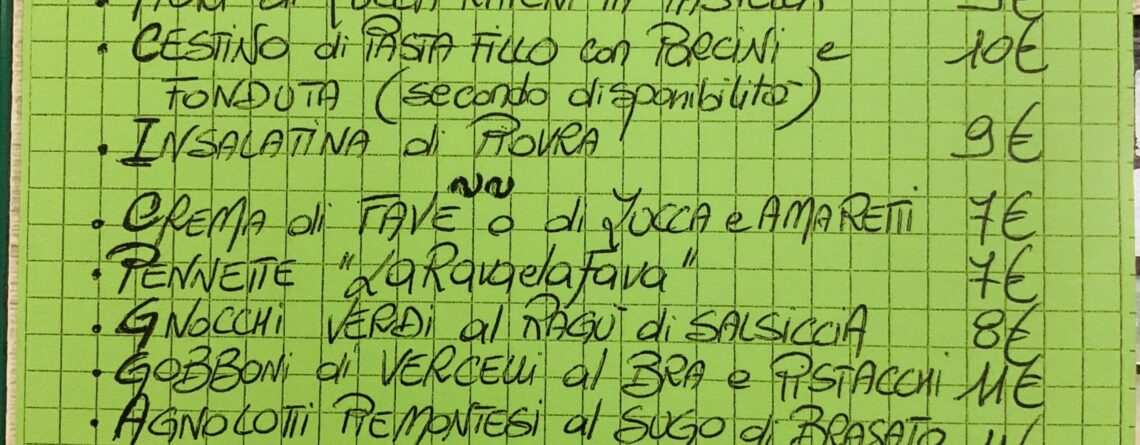 • CESTINO di PASTA FILLO con PORCINI e 10€
FONDUTA (secondo disponibilità)
• INSALATINA di PIOVRA 9€
~~
• CREMA di FAVE o di ZUCCA e AMARETTI 7€
• PENNETTE "LaRavaelaFava" 7€
• GNOCCHI VERDI al RAGÙ di SALSICCIA 8€
• GOBBONI di VERCELLI al BRA e PISTACCHI 11€
• AGNOLOTTI PIEMONTESI al SUGO di BRASATO